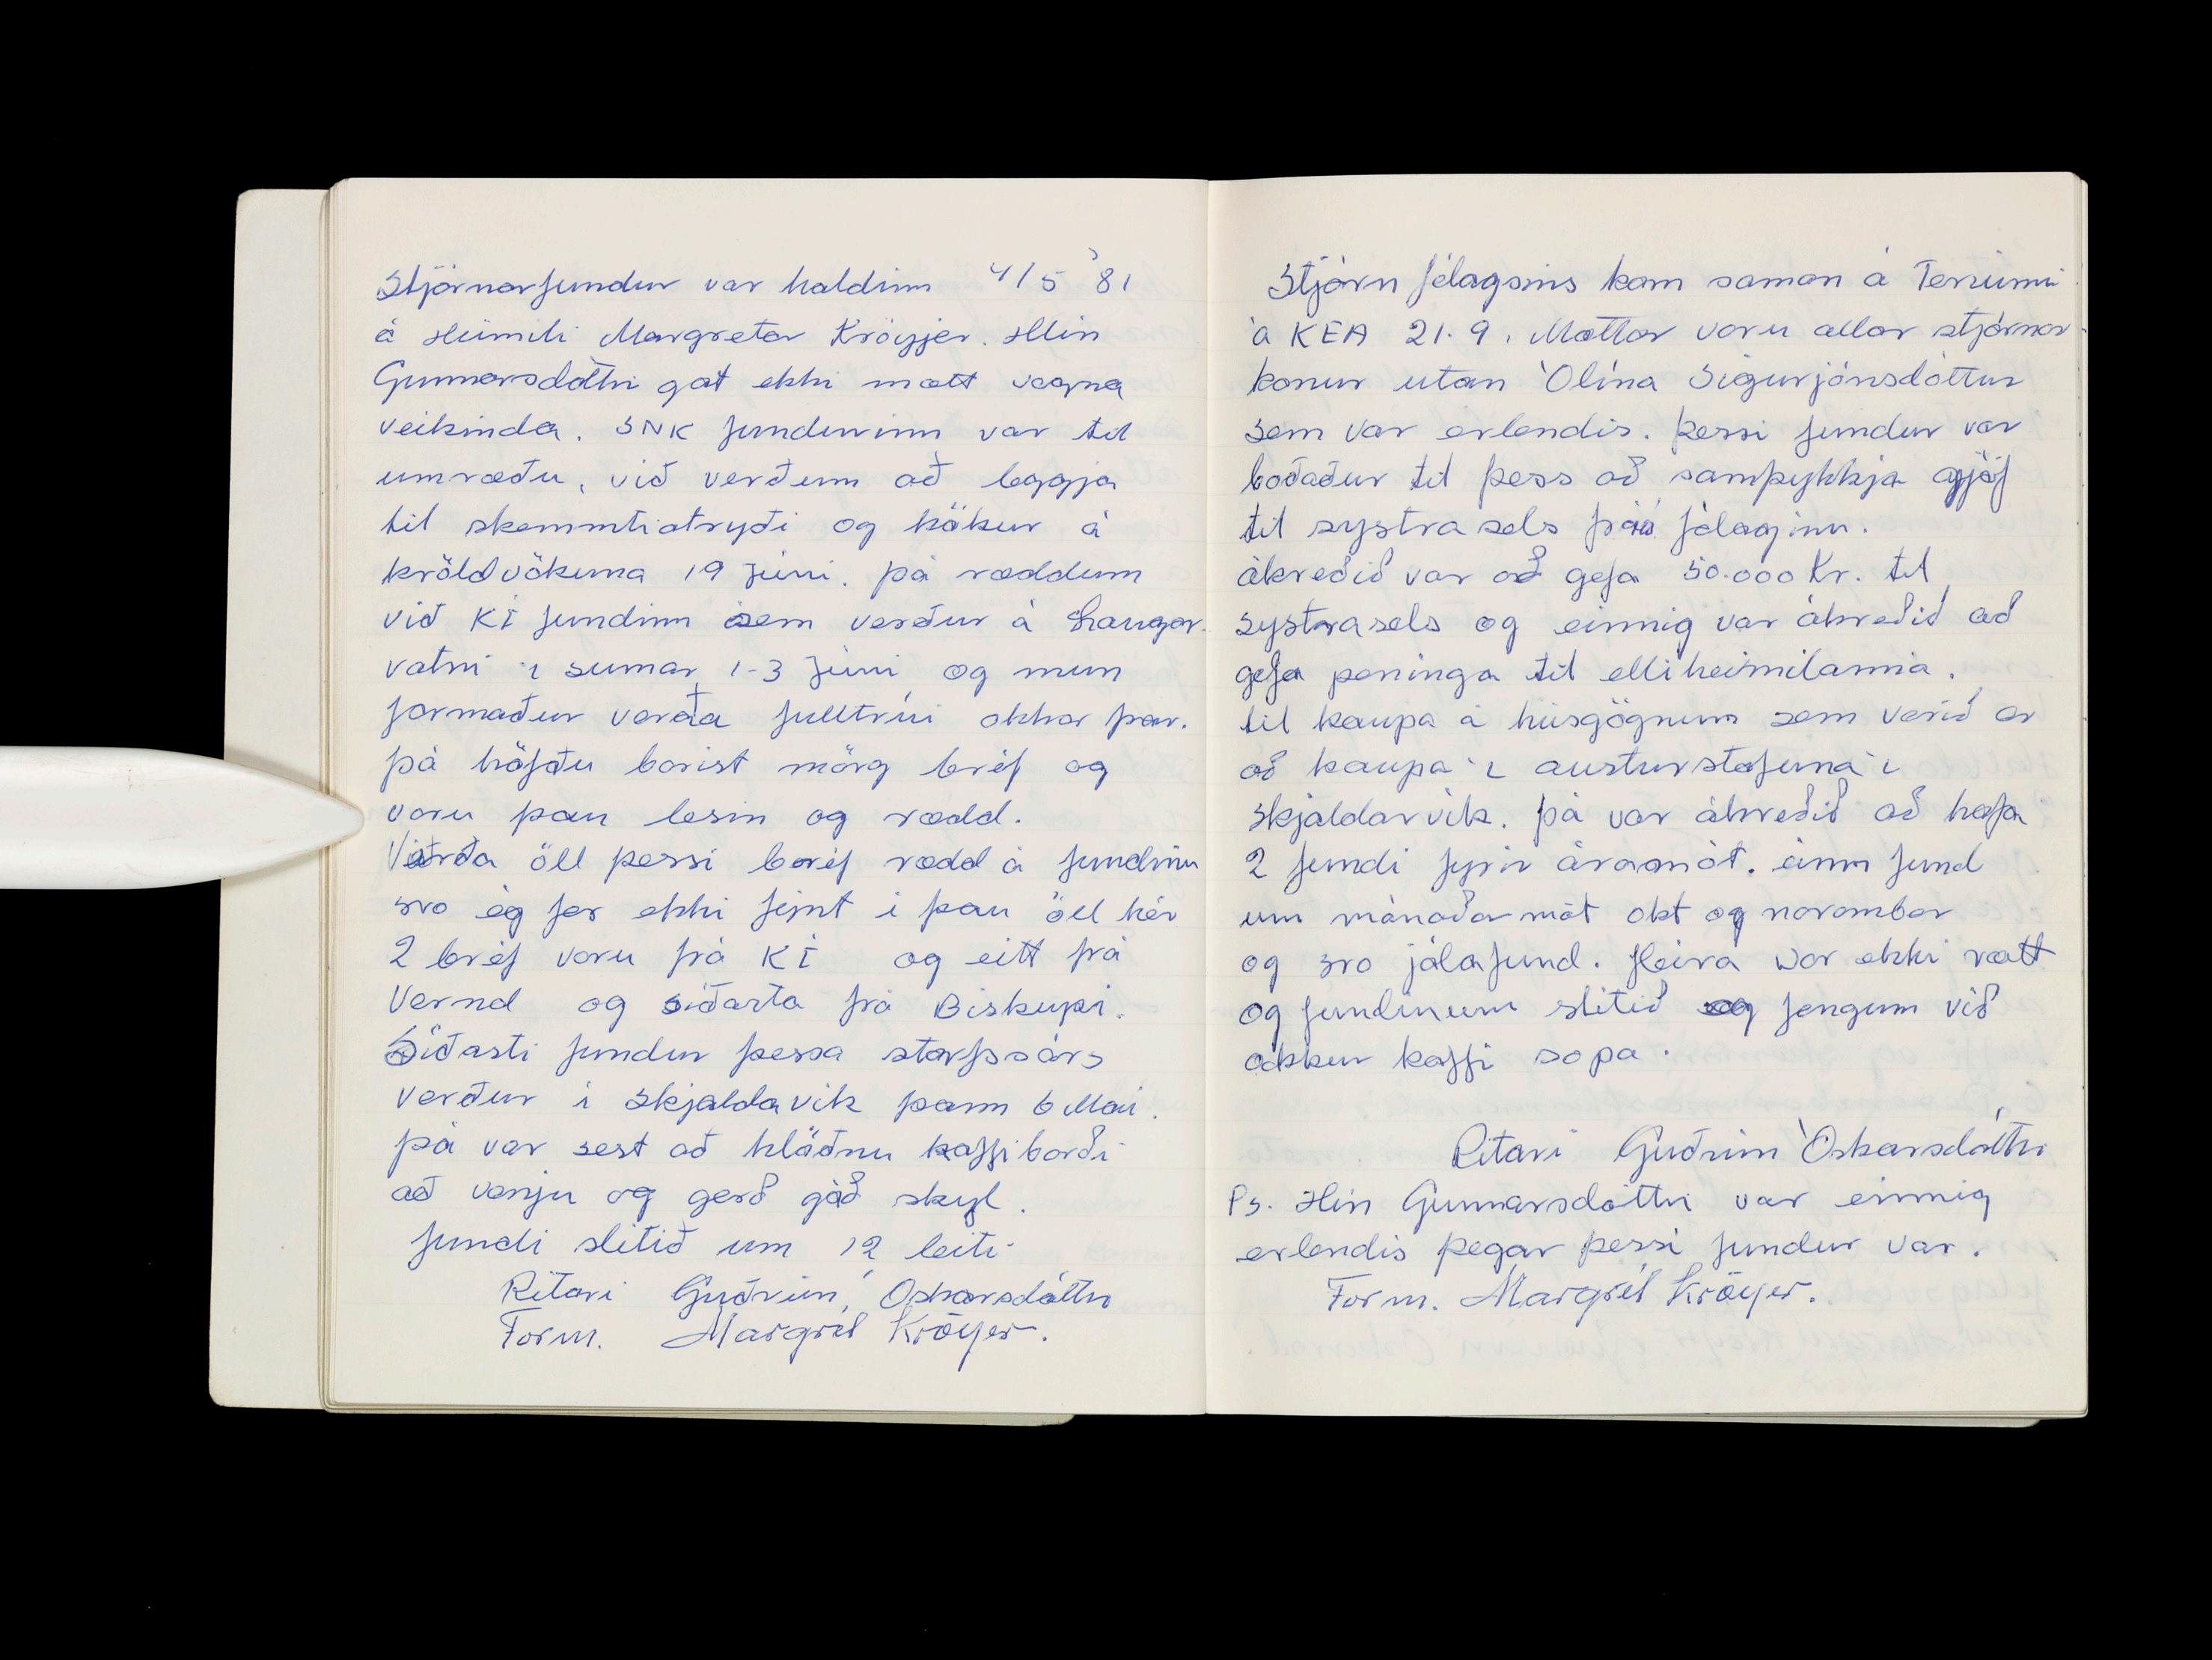 Stjórnarfundur var haldinn 4/5 '81
á Heimili Margretar Kröyjer. Hlín
Gunnarsdóttir gat ekki mætt vegna
veikinda. SNK fundurinn var til
umræðu, við verðum að leggja
til skemmtiatryði og kökur á
kvöldvökuna 19 júni. þá ræddum
við KÍ fundinn sem verður á Laugar-
vatni í sumar 1-3 júni og mun
formaður verða fulltrúi okkar þar.
þá höfðu borist mörg bréf og
voru þau lesin og rædd.
Verða öll þessi bréf rædd á fundinu
svo ég fer ekki feint í þau öll hér
2 bréf voru frá KÍ og eitt frá
Vernd og síðasta frá Biskupi.
Síðasti fundur þessa starfsárs
verður í Skjaldavík þann 6 Maí.
þá var sest að hlöðnu kaffiborði
að venju og gerð góð skyl.
fundi slitið um 12 leiti
Ritari Guðrún Óskarsdóttir
Form. Margrét Kröyer.
Stjórn félagsins kom saman á Teríunni
á KEA 21.9. Mættar voru allar stjórnar-
konur utan Ólína Sigurjónsdóttur
sem var erlendis. þessi fundur var
boðaður til þess að samþykkja gjöf
til systrasels frá félaginu.
ákveðið var að gefa 50.000 Kr. til
systrasels og einnig var ákveðið að
gefa peninga til elliheimilanna.
til kaupa á húsgögnum sem verið er
að kaupa í austurstofuna í
Skjaldarvík. þá var ákveðið að hafa
2 fundi fyrir áramót. einn fund
um mánaðarmót okt og november
og svo jólafund. fleira var ekki rætt
og fundinum slitið og fengum við
okkur kaffi sopa.
Ritari Guðrún Óskarsdóttir
Ps. Hlín Gunnarsdóttir var einnig
erlendis þegar þessi fundur var.
Form. Margrét Kröyer.